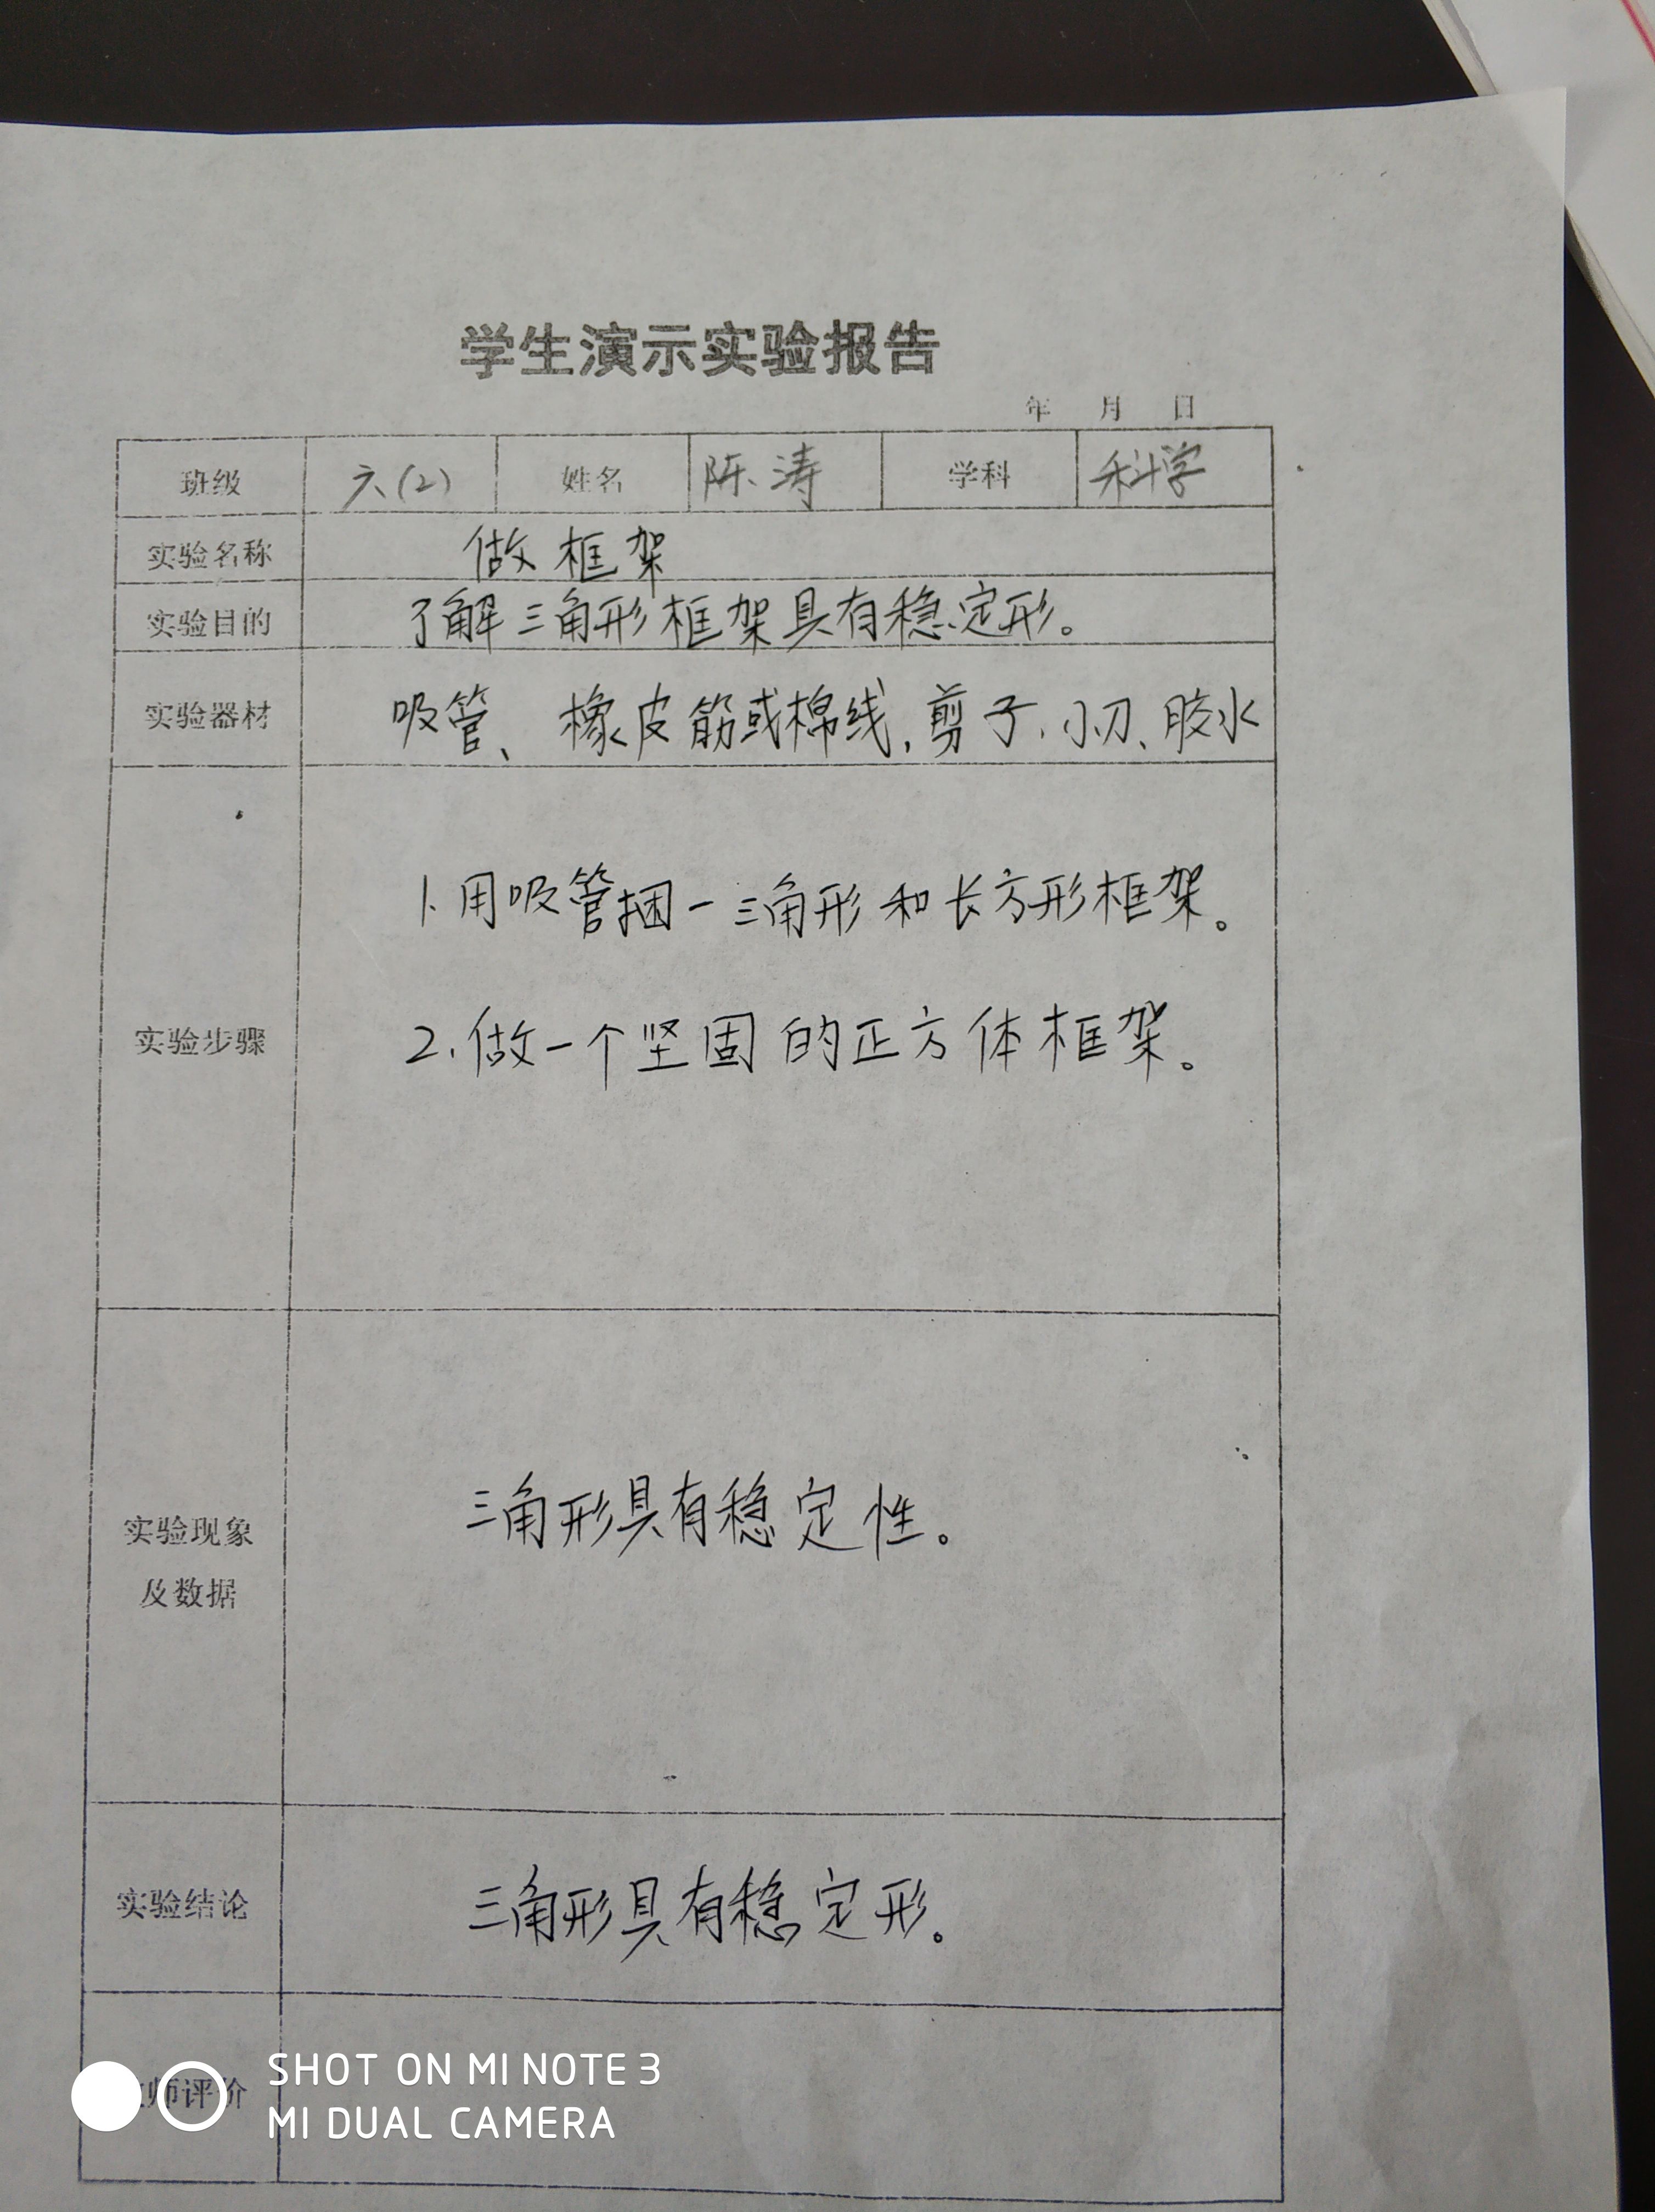 学生演示实验报告
年 月 日
班级 六(2) 姓名 陈涛 学科 科学
实验名称 做框架
实验目的 了解三角形框架具有稳定形。
实验器材 吸管、橡皮筋或棉线,剪子、小刀、胶水
1.用吸管捆一三角形和长方形框架。
实验步骤 2.做一个坚固的正方体框架。
实验现象 三角形具有稳定性。
及数据
实验结论 三角形具有稳定形。
师评价
SHOT ON MI NOTE 3
MI DUAL CAMERA